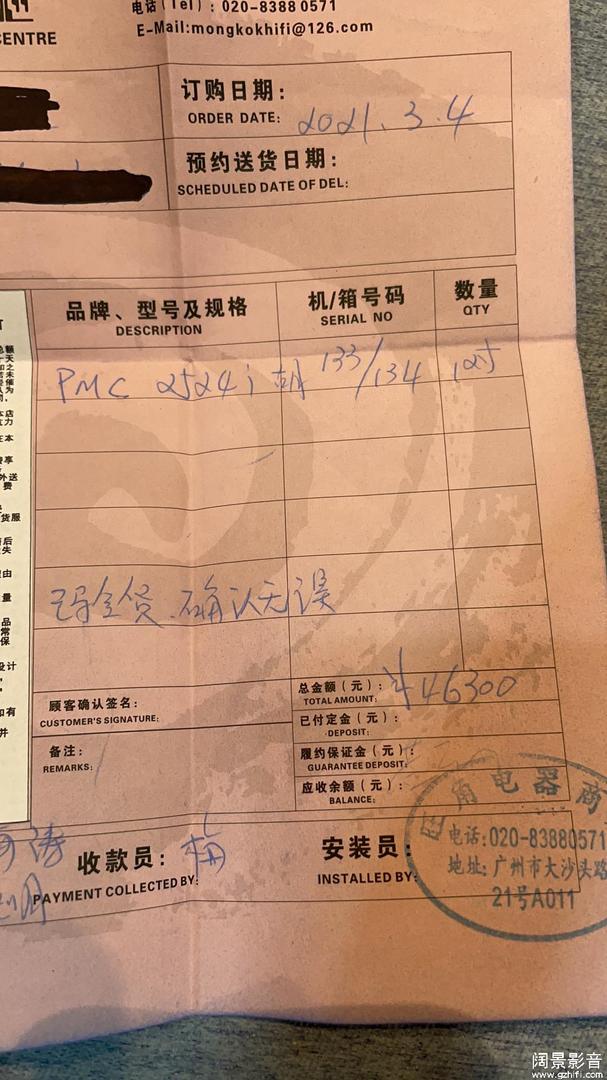 电话(Tel)：020-8388 0571
CENTRE
E-Mail:mongkokhifi@126.com
订购日期：
ORDER DATE: 2021.3.4
预约送货日期：
SCHEDULED DATE OF DEL:
品牌、型号及规格 机/箱号码 数量
DESCRIPTION SERIAL NO QTY
PMC 2524i 胡 133/134 1对
已验货.确认无误
总金额（元）： ¥46300
TOTAL AMOUNT:
顾客确认签名：
CUSTOMER'S SIGNATURE:
已付定金（元）：
DEPOSIT:
备注：
REMARKS:
履约保证金（元）：
GUARANTEE DEPOSIT:
应收余额（元）：
BALANCE:
收款员： 梅
PAYMENT COLLECTED BY:
安装员：
INSTALLED BY:
角电器商
电话:020-83880571
地址:广州市大沙头路
21号A011
阔景影音
www.gzhifi.com